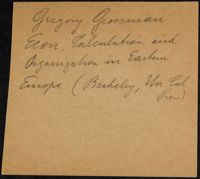 Gregory Grossman
Econ. Calculation and
Organization in Eastern
Europe (Berkeley, Un. Cal
Press)